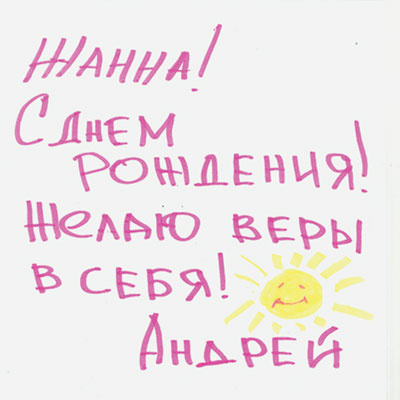 Жанна!
С днем
рождения!
Желаю веры
в себя!
Андрей